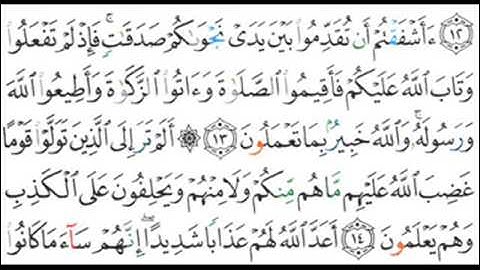 ١٢ ءَأَشْفَقْتُمْ أَن تُقَدِّمُوا۟ بَيْنَ يَدَىْ نَجْوَىٰكُمْ صَدَقَـٰتٍ ۚ فَإِذْ لَمْ تَفْعَلُوا۟
وَتَابَ ٱللَّهُ عَلَيْكُمْ فَأَقِيمُوا۟ ٱلصَّلَوٰةَ وَءَاتُوا۟ ٱلزَّكَوٰةَ وَأَطِيعُوا۟ ٱللَّهَ
وَرَسُولَهُۥ ۚ وَٱللَّهُ خَبِيرٌۢ بِمَا تَعْمَلُونَ ١٣ ۞ أَلَمْ تَرَ إِلَى ٱلَّذِينَ تَوَلَّوْا۟ قَوْمًا
غَضِبَ ٱللَّهُ عَلَيْهِم مَّا هُم مِّنكُمْ وَلَا مِنْهُمْ وَيَحْلِفُونَ عَلَى ٱلْكَذِبِ
وَهُمْ يَعْلَمُونَ ١٤ أَعَدَّ ٱللَّهُ لَهُمْ عَذَابًا شَدِيدًا ۖ إِنَّهُمْ سَآءَ مَا كَانُوا۟